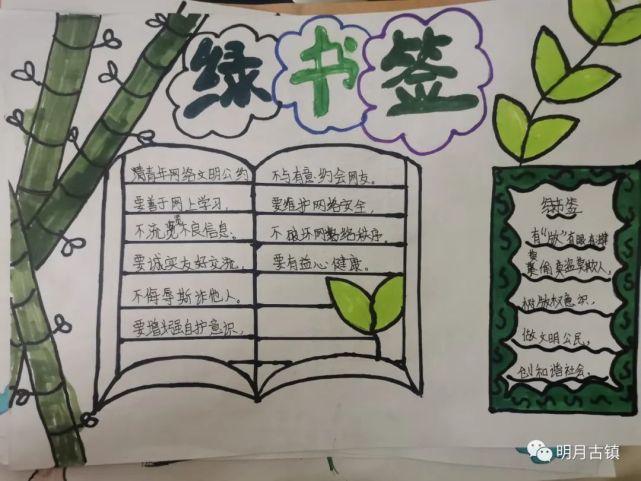 绿书签
青年网络文明公约
要善于网上学习，
不流览不良信息。
要诚实友好交流，
不侮辱斯诈他人。
要增强自护意识，
不与有意约会网友。
要维护网络安全，
不破坏网络秩序。
要有益心健康。
绿书签
有“版”有眼有
偷卖盗卖欺人，
树版权意识，
做文明公民，
创和谐社会.
明月古镇